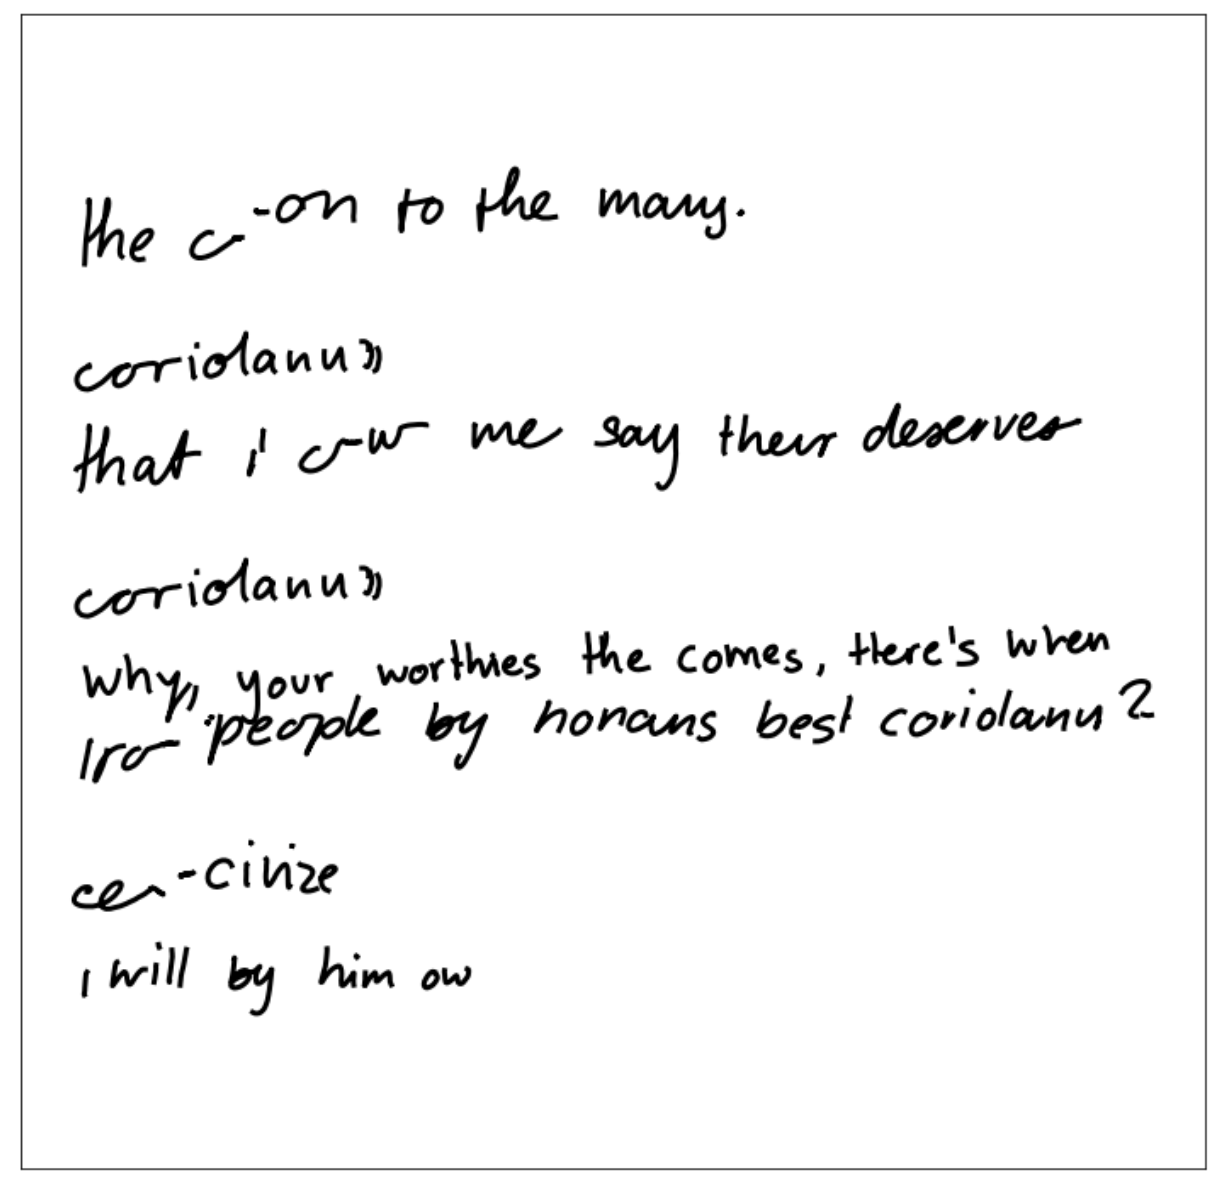 the to the many.
coriolanu
that me say their deserves
coriolanu
why, your worthies the comes, there's when
people by honans best coriolanu?
I will by him ow